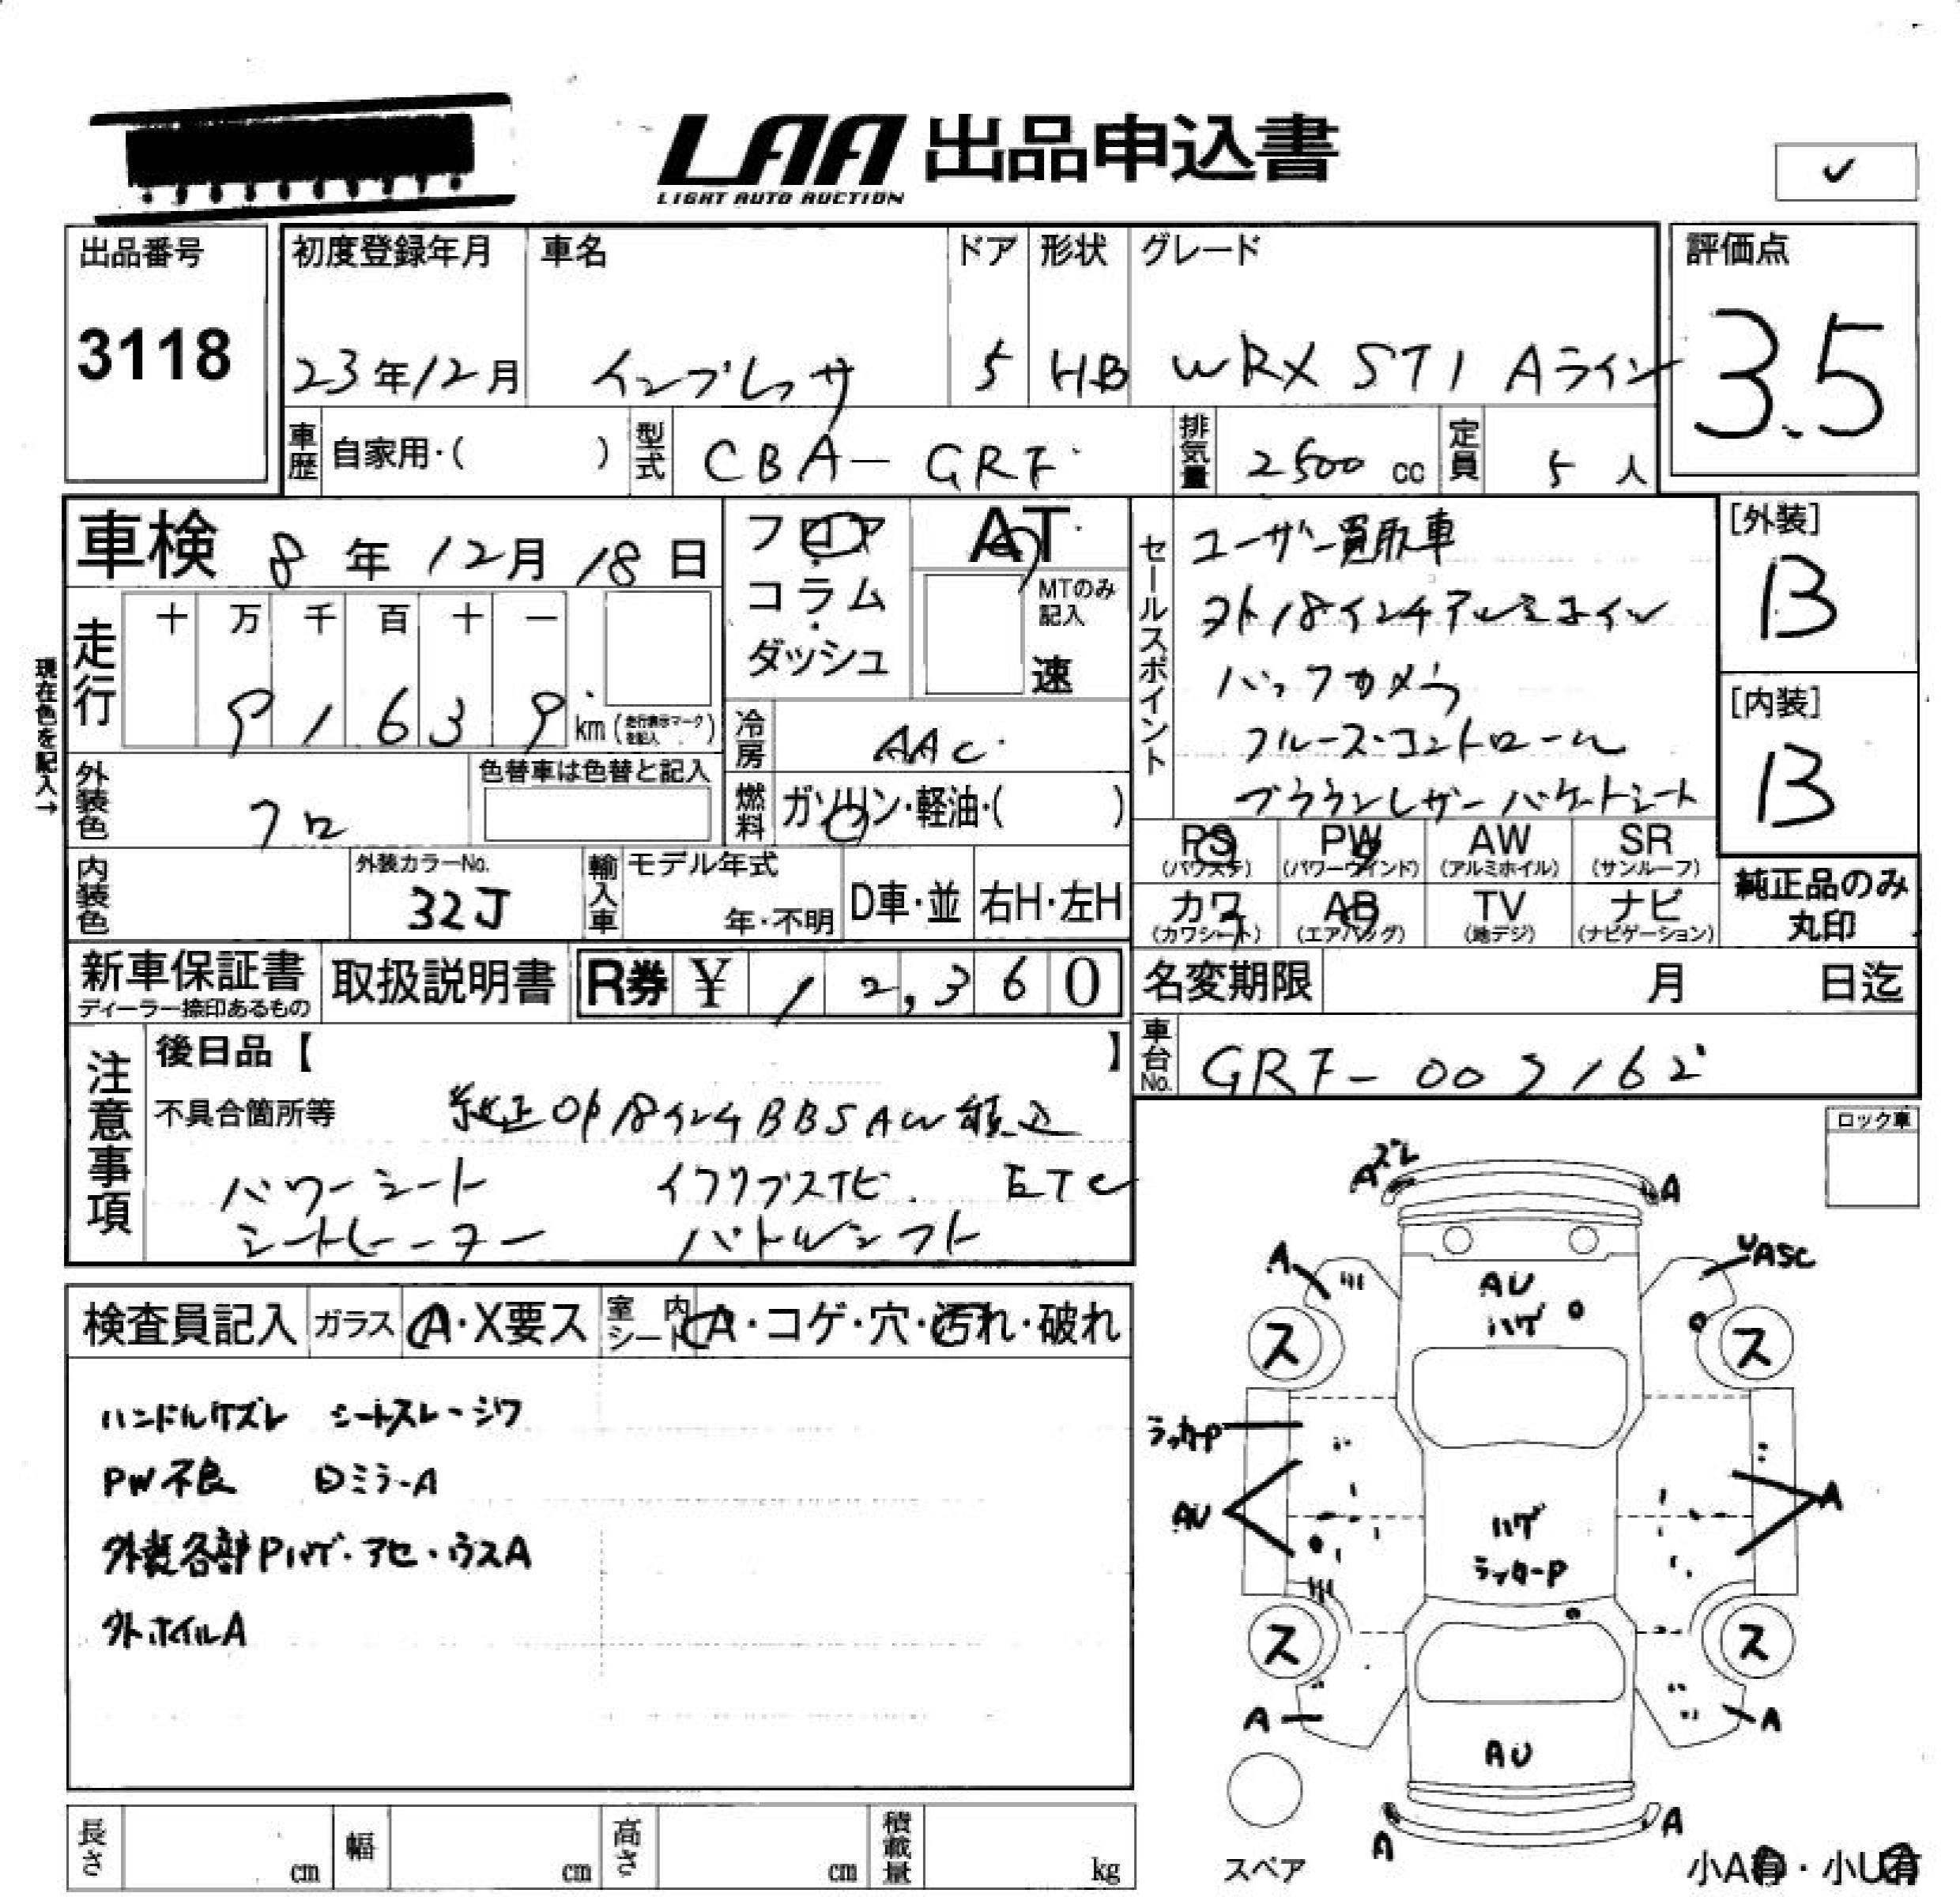 LAA 出品申込書
LIGHT AUTO AUCTION
✓
出品番号
3118
初度登録年月 車名 ドア 形状 グレード
23年12月 インプレッサ 5 HB WRX STI Aライン
評価点
3.5
車歴 自家用・( ) 型式 CBA-GRF 排気量 2500 cc 定員 5 人
車検 8年12月18日
フロア
コラム
ダッシュ
AT
MTのみ
記入
速
現在色を記入→
走行 十 万 千 百 十 一
91639 km (走行表示マークを記入)
冷房 AAC
燃料 ガソリン・軽油・( )
外装色 クロ
色替車は色替と記入
内装色
外装カラーNo.
32J
輸入車 モデル年式
年・不明
D車・並 右H・左H
セールスポイント
ユーザー買取車
外18インチアルミホイル
バックカメラ
クルーズ・コントロール
ブラウンレザーバケットシート
[外装]
B
[内装]
B
PS PW AW SR
(パワステ) (パワーウインド) (アルミホイル) (サンルーフ)
カワ AB TV ナビ
(カワシート) (エアバッグ) (地デジ) (ナビゲーション)
純正品のみ
丸印
新車保証書
ディーラー捺印あるもの
取扱説明書
R券 ¥ 12,360
名変期限 月 日迄
車台No. GRF-003162
注意事項
後日品【 】
不具合箇所等 純正OP18インチBBSAW積込
パワーシート イクリプスナビ ETC
シートヒーター パドルシフト
ロック車
検査員記入 ガラス A・X要ス 室内シート A・コゲ・穴・汚れ・破れ
ハンドルケズレ シートスレ・シワ
PW不良 Dミラ-A
外装各部Pハゲ・アセ・ウスA
外ホイルA
ズレ
A A
A UASC
AU
ハゲ
ス ス
ラッカーP
AU A
ハゲ
ラッカーP
ス ス
A A
AU
A A
スペア
小A有・小U有
長さ cm 幅 cm 高さ cm 積載量 kg